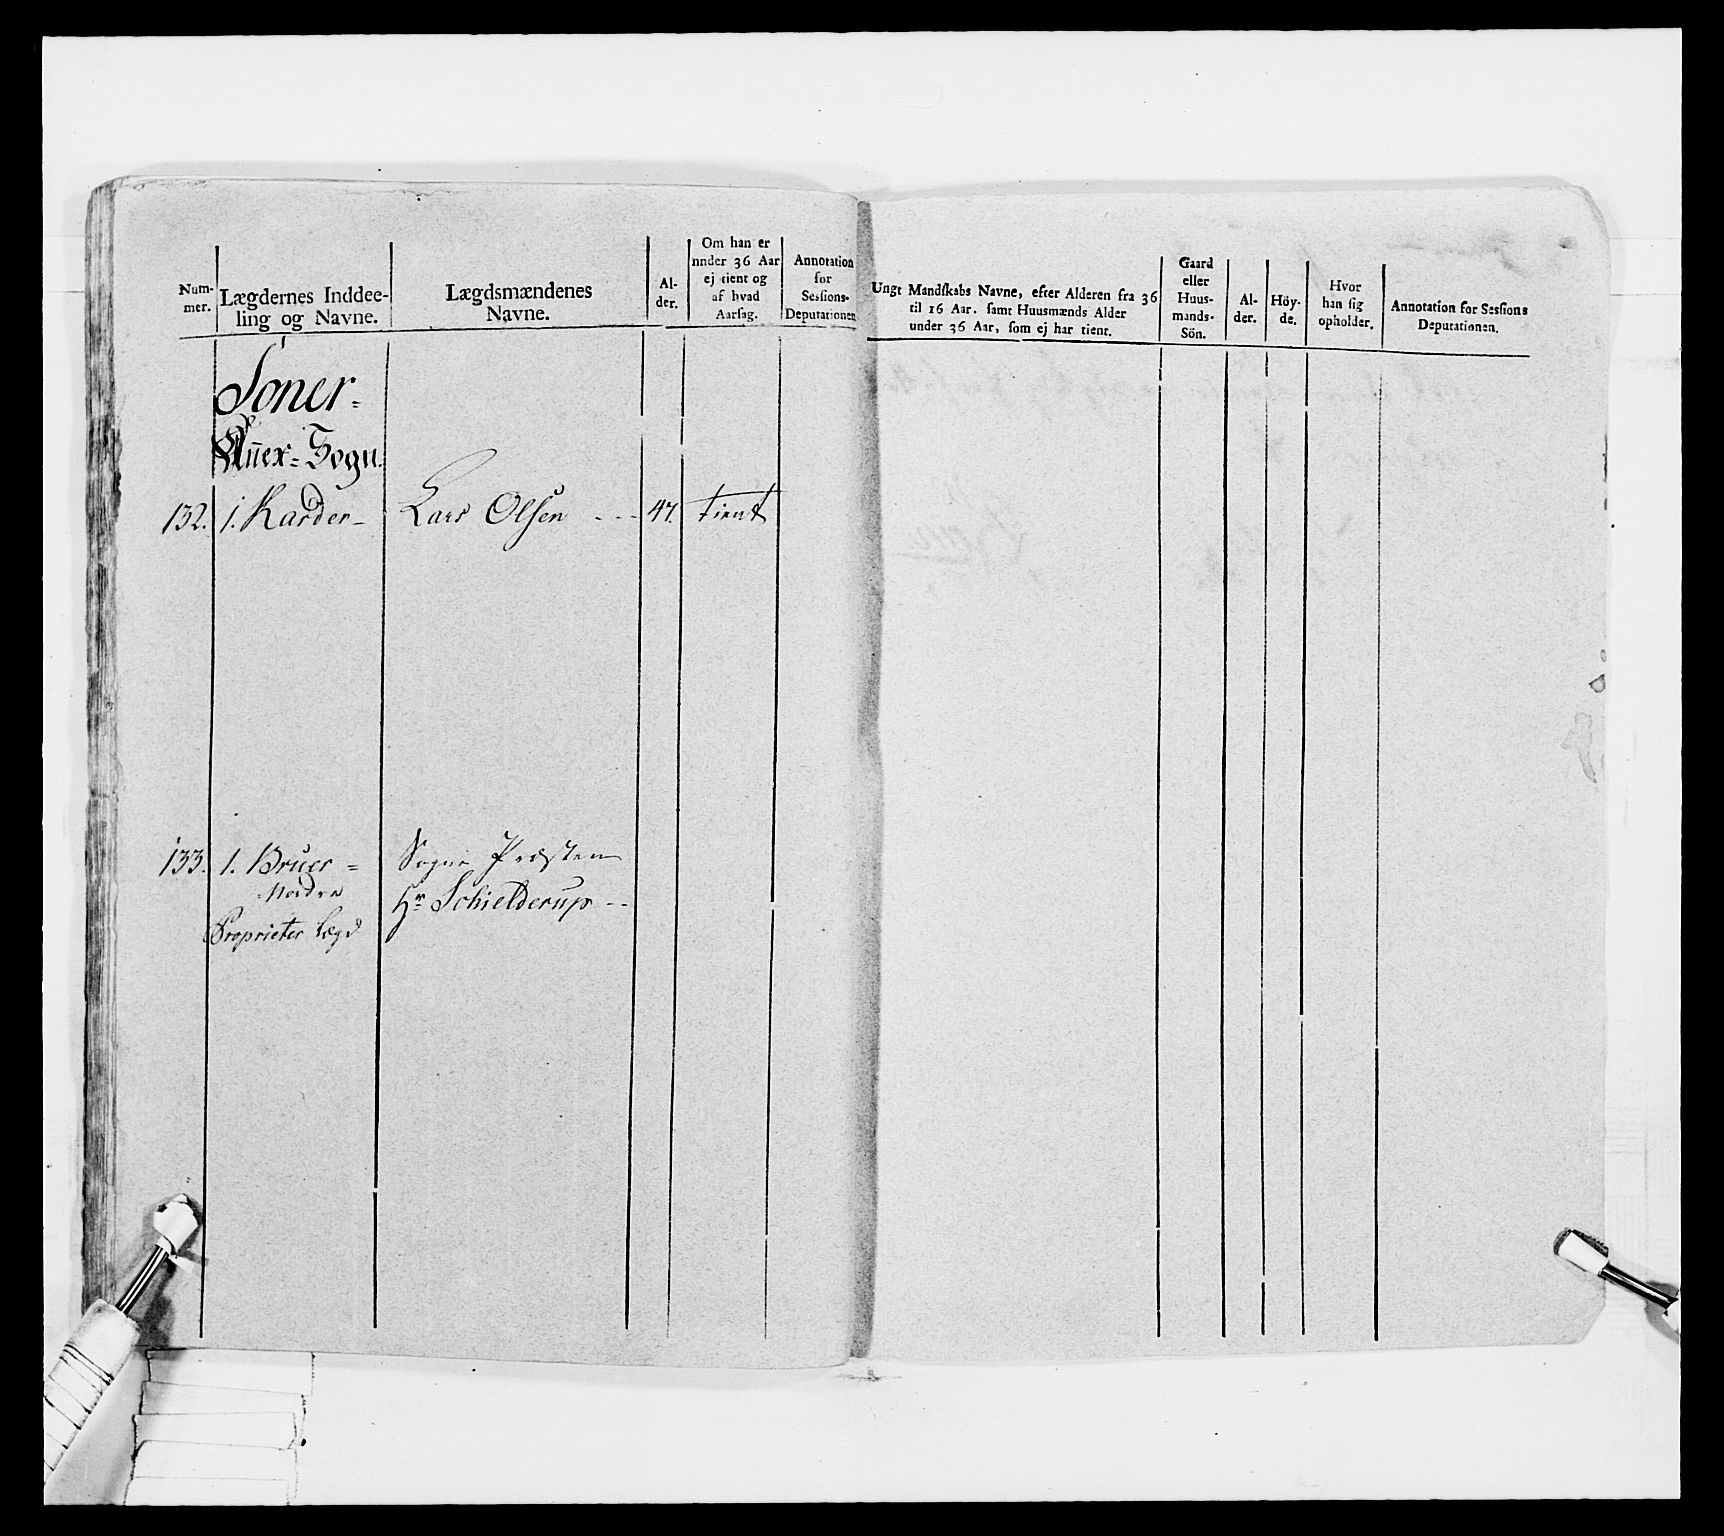 Num-
mer.
Lægdernes Inddee-
ling og Navne.
Lægdsmændenes
Navne.
Al-
der.
Om han er
nnder 36 Aar
ej tient og
af hvad
Aarsag.
Annotation
for
Sessions-
Deputationen
Soner-
Anex-Sogn.
132. 1. Karder- Lars Olsen - - 47. tient
133. 1. Bruer = Sogne Præsten
Nordre Hr Schielderup - -
Proprieter Lægd
Ungt Mandskabs Navne, efter Alderen fra 36
til 16 Aar. samt Huusmænds Alder
under 36 Aar, som ej har tient.
Gaard
eller
Huus-
mands-
Sön.
Al-
der.
Höy-
de.
Hvor
han sig
opholder.
Annotation for Sessions
Deputationen.